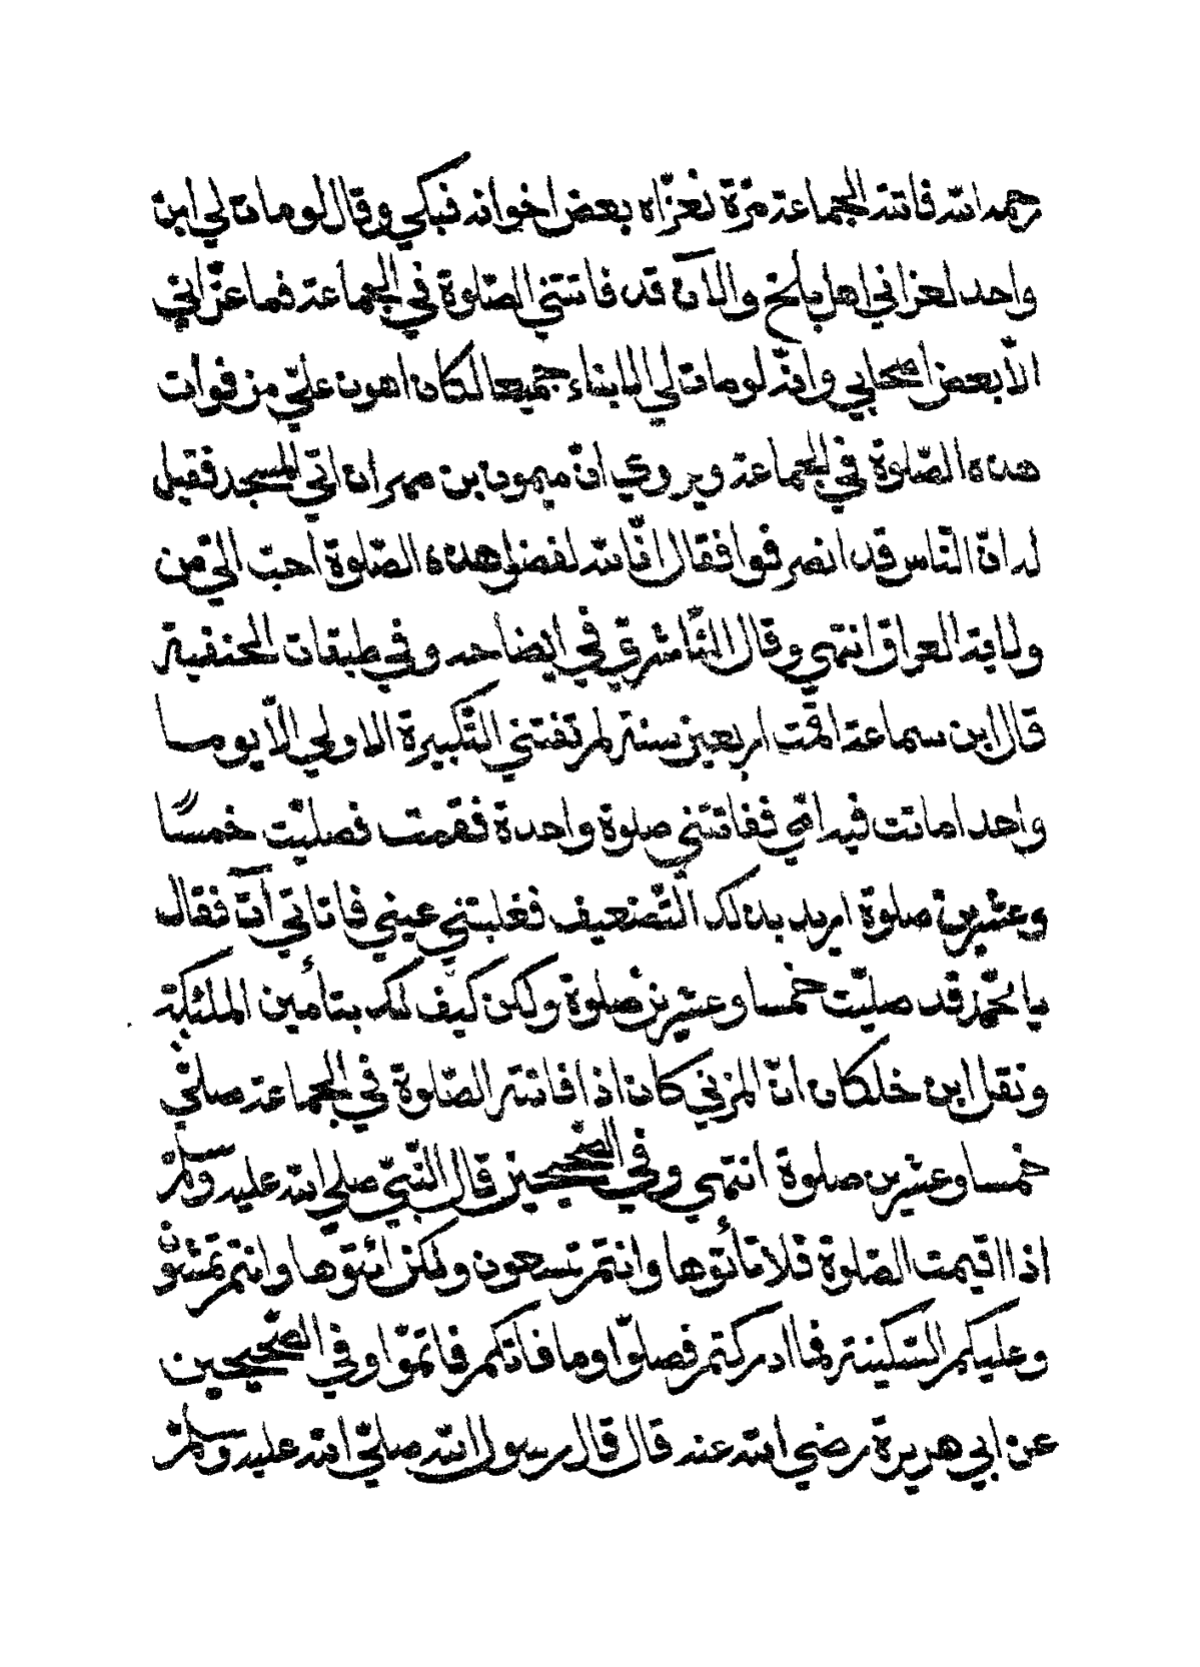 رحمه الله فاتته الجماعة مرّة فعزّاه بعض اخوانه فبكي وقال لو مات لي ابن
واحد لعزاني اهل بلخ والآن قد فاتتني الصّلوة في الجماعة فما عزّاني
الّا بعض اصحابي وانّه لو مات لي الابناء جميعا لكان اهون عليّ من فوات
هذه الصّلوة في الجماعة ويروي انّ ميمون بن مهران اتي المسجد فقيل
له انّ النّاس قد انصرفوا فقال انّا لله لفضل هذه الصّلوة احبّ اليّ من
ولاية العراق انتهي وقال الشّاشرقي في ايضاحه وفي طبقات الحنفية
قال ابن سماعة اقمت اربعين سنة لم تفتني التّكبيرة الاولي الّا يوما
واحدا ماتت فيه امّي ففاتتني صلوة واحدة فقمت فصليّت خمسًا
وعشرين صلوة اريد بذلك التّضعيف فغلبتني عيني فاتاني آت فقال
يا محمّد قد صليّت خمسا وعشرين صلوة ولكن كيف لك بتأمين الملئكة
ونقل ابن خلكان انّ المزني كان اذا فاتته الصّلوة في الجماعة صلّي
خمسا وعشرين صلوة انتهي وفي الصّحيحين قال النّبيّ صلي الله عليه وسلّم
اذا اقيمت الصّلوة فلا تأتوها وانتم تسعون ولكن ائتوها وانتم تمشون
وعليكم السّكينة فما ادركتم فصلّوا وما فاتكم فاتمّوا وفي الصّحيحين
عن ابي هريرة رضي الله عنه قال قال رسول الله صلّي الله عليه وسلّم